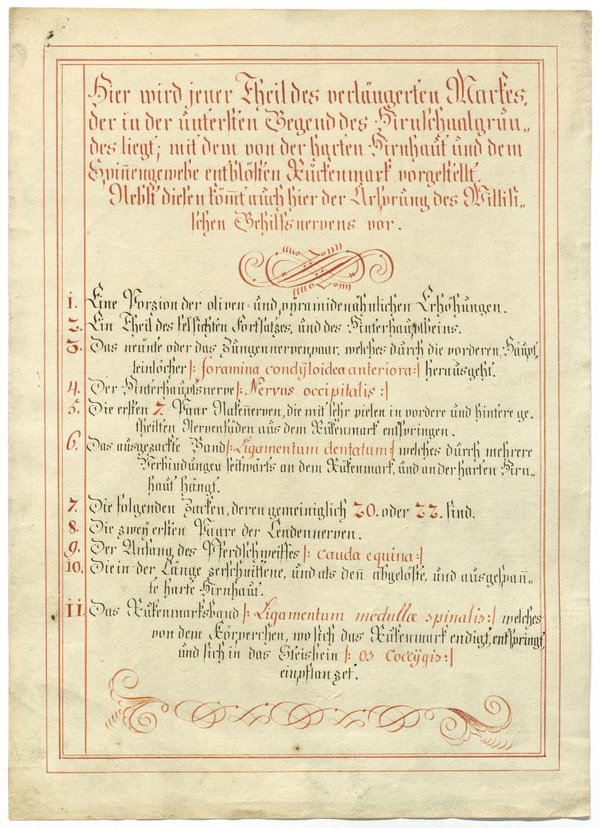 Hier wird jener Theil des verlängerten Markes,
der in der untersten Gegend des Hirnschaalgrun=
des liegt; mit dem von der harten Hirnhaut und dem
Spiñengewebe entblösten Rückenmark vorgestellt.
Nebst diesen köm̃t auch hier der Ursprung des Willisi=
schen Beihilfsnervens vor.
1. Eine Porzion der oliven= und pyramidenähnlichen Erhöhungen.
2. Ein Theil des felsichten Fortsatzes, und des Hinterhauptbeins.
3. Das neunte oder das Zungennervenpaar, welches durch die vorderen Haupt
beinlöcher |: foramina condÿloidea anteriora :| herausgeht.
4. Der Hinterhauptsnerve |: Nervus occipitalis :|
5. Die ersten 7. Paar Nakenerven, die mit sehr vielen in vordere und hintere ge=
theilten Nervenfäden aus dem Rükenmark entspringen.
6. Das ausgezackte Band |: Ligamentum dentatum :| welches durch mehrere
Verbindungen seitwärts an dem Rükenmark, und an der harten Hirn=
haut hängt.
7. Die folgenden Zacken, deren gemeiniglich 20. oder 22. sind.
8. Die zwey ersten Paare der Lendennerven.
9. Der Anfang des Pferdschweifses |: cauda equina :|
10. Die in der Länge zerschnittene, und als deñ abgelöste, und ausgespañ=
te harte Hirnhaut.
11. Das Rükenmarksband |: Ligamentum medullæ spinalis :| welches
von dem Körperchen, wo sich das Rükenmark endigt, entspringt,
und sich in das Steisbein |: os coccÿgis :|
einpflanzet.